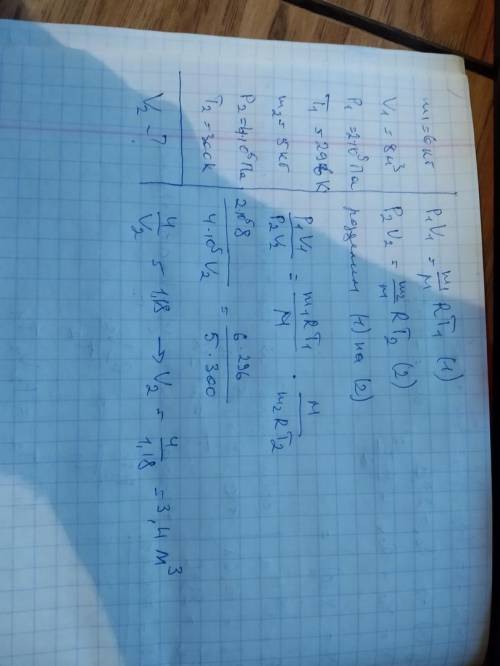 m1 = 6 кг
V1 = 8 м³
P1 = 2·10⁵ Па
T1 = 296 K
m2 = 5 кг
P2 = 4·10⁵ Па
T2 = 300 K
V2 - ?
P1V1 = m1/M RT1 (1)
P2V2 = m2/M RT2 (2)
разделим (1) на (2)
P1V1/P2V2 = m1RT1/M · M/m2RT2
2·10⁵8/4·10⁵V2 = 6·296/5·300
4/V2 = 1,18 → V2 = 4/1,18 = 3,4 м³